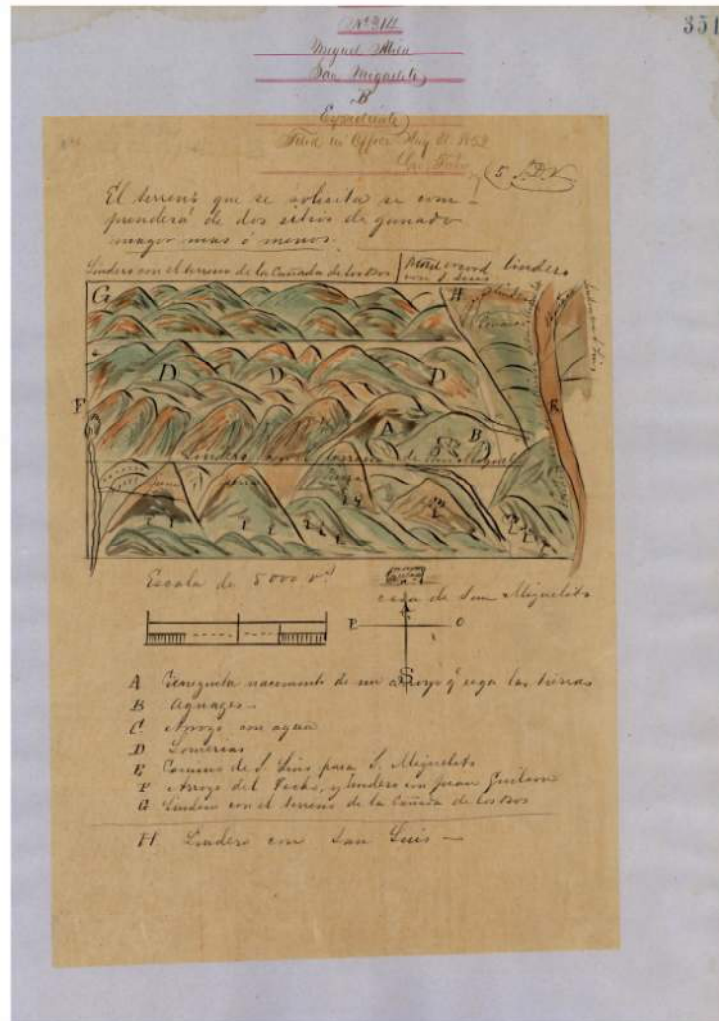 351
Miguel Avila
San Miguelito
B
Expediente
Filed in Office Aug 31 1852
El terreno que se solicita se com-
prenderá de dos sitios de ganado
mayor mas ó menos.
Lindero con el terreno de la Cañada de los Osos
lindero
con S. Luis
G
H
D D D
F
A
B
E
Lindero con el terreno de San Miguel
Escala de 5000 vs
casa de San Miguelito
E O
S
A Cieneguita nacimiento de un arroyo q. riega las tierras
B Aguages
C Arroyo con agua
D Lomerias
E Camino de S. Luis para S. Miguelito
F Arroyo del y lindero con Juan
G Lindero con el terreno de la Cañada de los Osos
H Lindero con San Luis